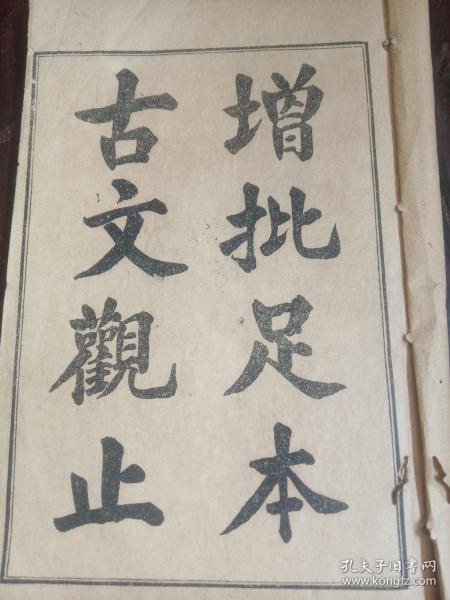 增批足本
古文觀止
孔夫子旧书网
www.kongfz.com